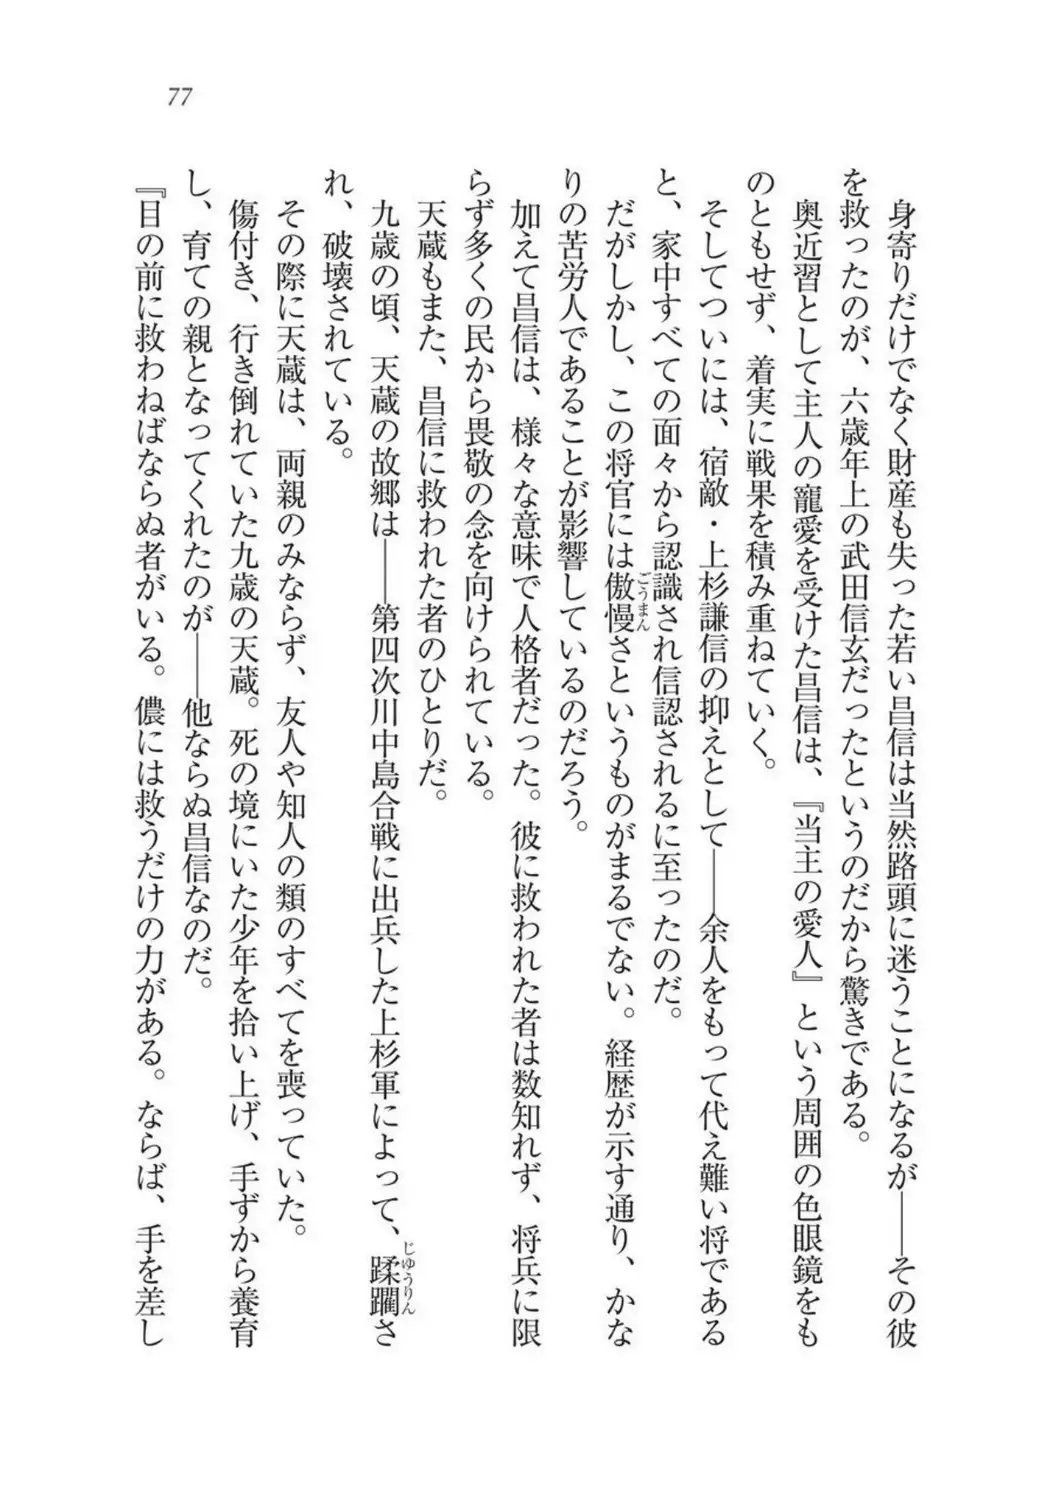 77
身寄りだけでなく財産も失った若い昌信は当然路頭に迷うことになるが――その彼
を救ったのが、六歳年上の武田信玄だったというのだから驚きである。
奥近習として主人の寵愛を受けた昌信は、『当主の愛人』という周囲の色眼鏡をも
のともせず、着実に戦果を積み重ねていく。
そしてついには、宿敵・上杉謙信の抑えとして――余人をもって代え難い将である
と、家中すべての面々から認識され信認されるに至ったのだ。
だがしかし、この将官には傲慢さというものがまるでない。経歴が示す通り、かな
ごうまん
りの苦労人であることが影響しているのだろう。
加えて昌信は、様々な意味で人格者だった。彼に救われた者は数知れず、将兵に限
らず多くの民から畏敬の念を向けられている。
天蔵もまた、昌信に救われた者のひとりだ。
九歳の頃、天蔵の故郷は――第四次川中島合戦に出兵した上杉軍によって、蹂躙さ
じゅうりん
れ、破壊されている。
その際に天蔵は、両親のみならず、友人や知人の類のすべてを喪っていた。
傷付き、行き倒れていた九歳の天蔵。死の境にいた少年を拾い上げ、手ずから養育
し、育ての親となってくれたのが――他ならぬ昌信なのだ。
『目の前に救わねばならぬ者がいる。儂には救うだけの力がある。ならば、手を差し